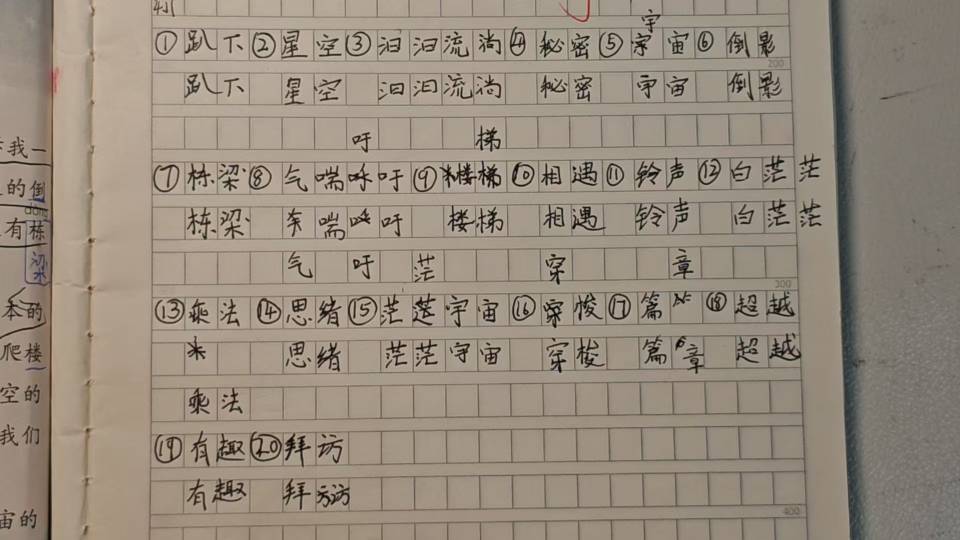 宇
①趴下②星空③汩汩流淌④秘密⑤宇宙⑥倒影
200
趴下 星空 汩汩流淌 秘密 宇宙 倒影
吁 梯
⑦栋梁⑧气喘呼吁⑨楼梯⑩相遇⑪铃声⑫白茫茫
栋梁 喘吁 楼梯 相遇 铃声 白茫茫
气 吁 茫 穿 章
300
⑬乘法⑭思绪⑮茫茫宇宙⑯穿梭⑰篇⑱超越
思绪 茫茫宇宙 穿梭 篇章 超越
乘法
⑲有趣⑳拜访
有趣 拜访
400
我一
的倒
dòng
有栋
梁
本的
爬楼
空的
我们
宙的